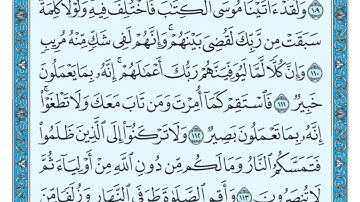 ١٠٩ وَلَقَدْ ءَاتَيْنَا مُوسَى ٱلْكِتَٰبَ فَٱخْتُلِفَ فِيهِ وَلَوْلَا كَلِمَةٌ
سَبَقَتْ مِن رَّبِّكَ لَقُضِىَ بَيْنَهُمْ ۚ وَإِنَّهُمْ لَفِى شَكٍّ مِّنْهُ مُرِيبٍ
١١٠ وَإِنَّ كُلًّا لَّمَّا لَيُوَفِّيَنَّهُمْ رَبُّكَ أَعْمَٰلَهُمْ ۚ إِنَّهُۥ بِمَا يَعْمَلُونَ
خَبِيرٌ ١١١ فَٱسْتَقِمْ كَمَآ أُمِرْتَ وَمَن تَابَ مَعَكَ وَلَا تَطْغَوْا۟ ۚ
إِنَّهُۥ بِمَا تَعْمَلُونَ بَصِيرٌ ١١٢ وَلَا تَرْكَنُوٓا۟ إِلَى ٱلَّذِينَ ظَلَمُوا۟
فَتَمَسَّكُمُ ٱلنَّارُ وَمَا لَكُم مِّن دُونِ ٱللَّهِ مِنْ أَوْلِيَآءَ ثُمَّ
لَا تُنصَرُونَ ١١٣ وَأَقِمِ ٱلصَّلَوٰةَ طَرَفَىِ ٱلنَّهَارِ وَزُلَفًا مِّنَ